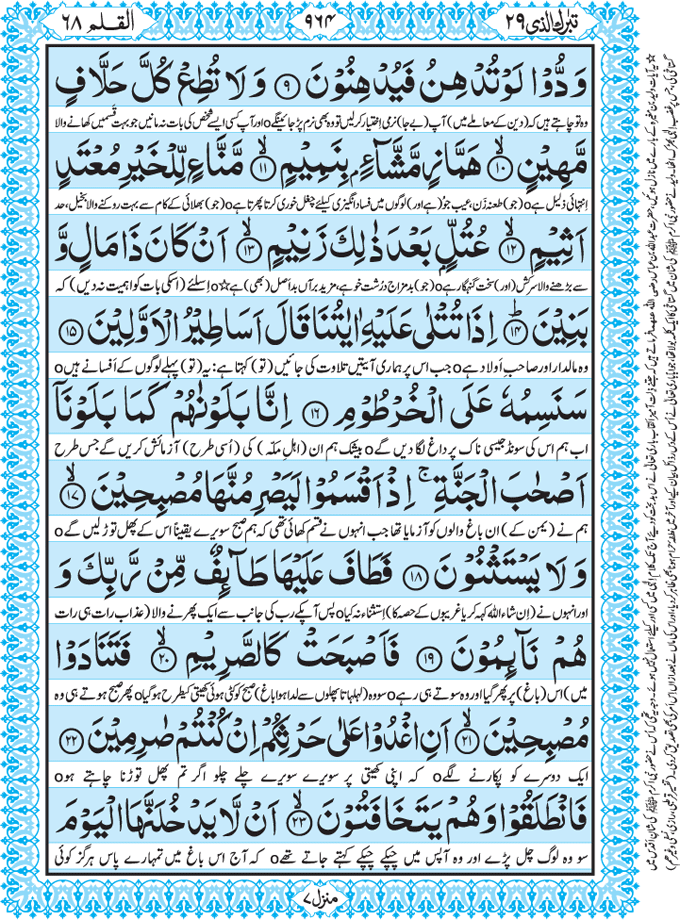 تبٰرك الذی ٢٩
٩٦٤
القلم ٦٨
وَدُّوْا لَوْ تُدْهِنُ فَيُدْهِنُوْنَ ۹ وَلَا تُطِعْ كُلَّ حَلَّافٍ
وہ تو چاہتے ہیں کہ (دین کے معاملے میں) آپ (بے جا) نرمی اختیار کر لیں تو وہ بھی نرم پڑ جائینگےo اور آپ کسی ایسے شخص کی بات نہ مانیں جو بہت قَسمیں کھانے والا
مَّهِيْنٍ ۱۰ هَمَّازٍ مَّشَّآءٍۭ بِنَمِيْمٍ ۱۱ مَّنَّاعٍ لِّلْخَيْرِ مُعْتَدٍ
اِنتہائی ذلیل ہےo (جو) طعنہ زَن، عیب جُو (ہے اور) لوگوں میں فساد انگیزی کیلئے چغل خوری کرتا پھرتا ہےo (جو) بھلائی کے کام سے بہت روکنے والا بخیل، حد
اَثِيْمٍ ۱۲ عُتُلٍّۭ بَعْدَ ذٰلِكَ زَنِيْمٍ ۱۳ اَنْ كَانَ ذَا مَالٍ وَّ
سے بڑھنے والا سرکش (اور) سخت گنہگار ہےo (جو) بد مزاج درُشت خو ہے، مزید برآں بد اَصل (بھی) ہے☆o اِسلئے (اسکی بات کو اہمیت نہ دیں) کہ
بَنِيْنَ ۱۴ اِذَا تُتْلٰى عَلَيْهِ اٰيٰتُنَا قَالَ اَسَاطِيْرُ الْاَوَّلِيْنَ ۱۵
وہ مالدار اور صاحبِ اَولاد ہےo جب اس پر ہماری آیتیں تلاوت کی جائیں (تو) کہتا ہے: یہ (تو) پہلے لوگوں کے اَفسانے ہیںo
سَنَسِمُهٗ عَلَى الْخُرْطُوْمِ ۱۶ اِنَّا بَلَوْنٰهُمْ كَمَا بَلَوْنَاۤ
اب ہم اس کی سونڈ جیسی ناک پر داغ لگا دیں گےo بیشک ہم ان (اہلِ مکہ) کی (اُسی طرح) آزمائش کریں گے جس طرح
اَصْحٰبَ الْجَنَّةِ ۚ اِذْ اَقْسَمُوْا لَيَصْرِمُنَّهَا مُصْبِحِيْنَ ۱۷
ہم نے (یمن کے) ان باغ والوں کو آزمایا تھا جب انہوں نے قسم کھائی تھی کہ ہم صبح سویرے یقیناً اس کے پھل توڑ لیں گےo
وَلَا يَسْتَثْنُوْنَ ۱۸ فَطَافَ عَلَيْهَا طَآئِفٌ مِّنْ رَّبِّكَ وَ
اور انہوں نے (اِن شاءَ اللہ کہہ کر یا غریبوں کے حصہ کا) اِستثناء نہ کیاo پس آپکے رب کی جانب سے ایک پھرنے والا (عذاب رات ہی رات
هُمْ نَآئِمُوْنَ ۱۹ فَاَصْبَحَتْ كَالصَّرِيْمِ ۲۰ فَتَنَادَوْا
میں) اس (باغ) پر پھر گیا اور وہ سوتے ہی رہےo سو وہ (لہلہاتا پھلوں سے لدا ہوا باغ) صبح کو کٹی ہوئی کھیتی کیطرح ہو گیاo پھر صبح ہوتے ہی وہ
مُصْبِحِيْنَ ۲۱ اَنِ اغْدُوْا عَلٰى حَرْثِكُمْ اِنْ كُنْتُمْ صٰرِمِيْنَ ۲۲
ایک دوسرے کو پکارنے لگےo کہ اپنی کھیتی پر سویرے سویرے چلے چلو اگر تم پھل توڑنا چاہتے ہوo
فَانْطَلَقُوْا وَهُمْ يَتَخَافَتُوْنَ ۲۳ اَنْ لَّا يَدْخُلَنَّهَا الْيَوْمَ
سو وہ لوگ چل پڑے اور وہ آپس میں چپکے چپکے کہتے جاتے تھےo کہ آج اس باغ میں تمہارے پاس ہرگز کوئی
منزل ٧